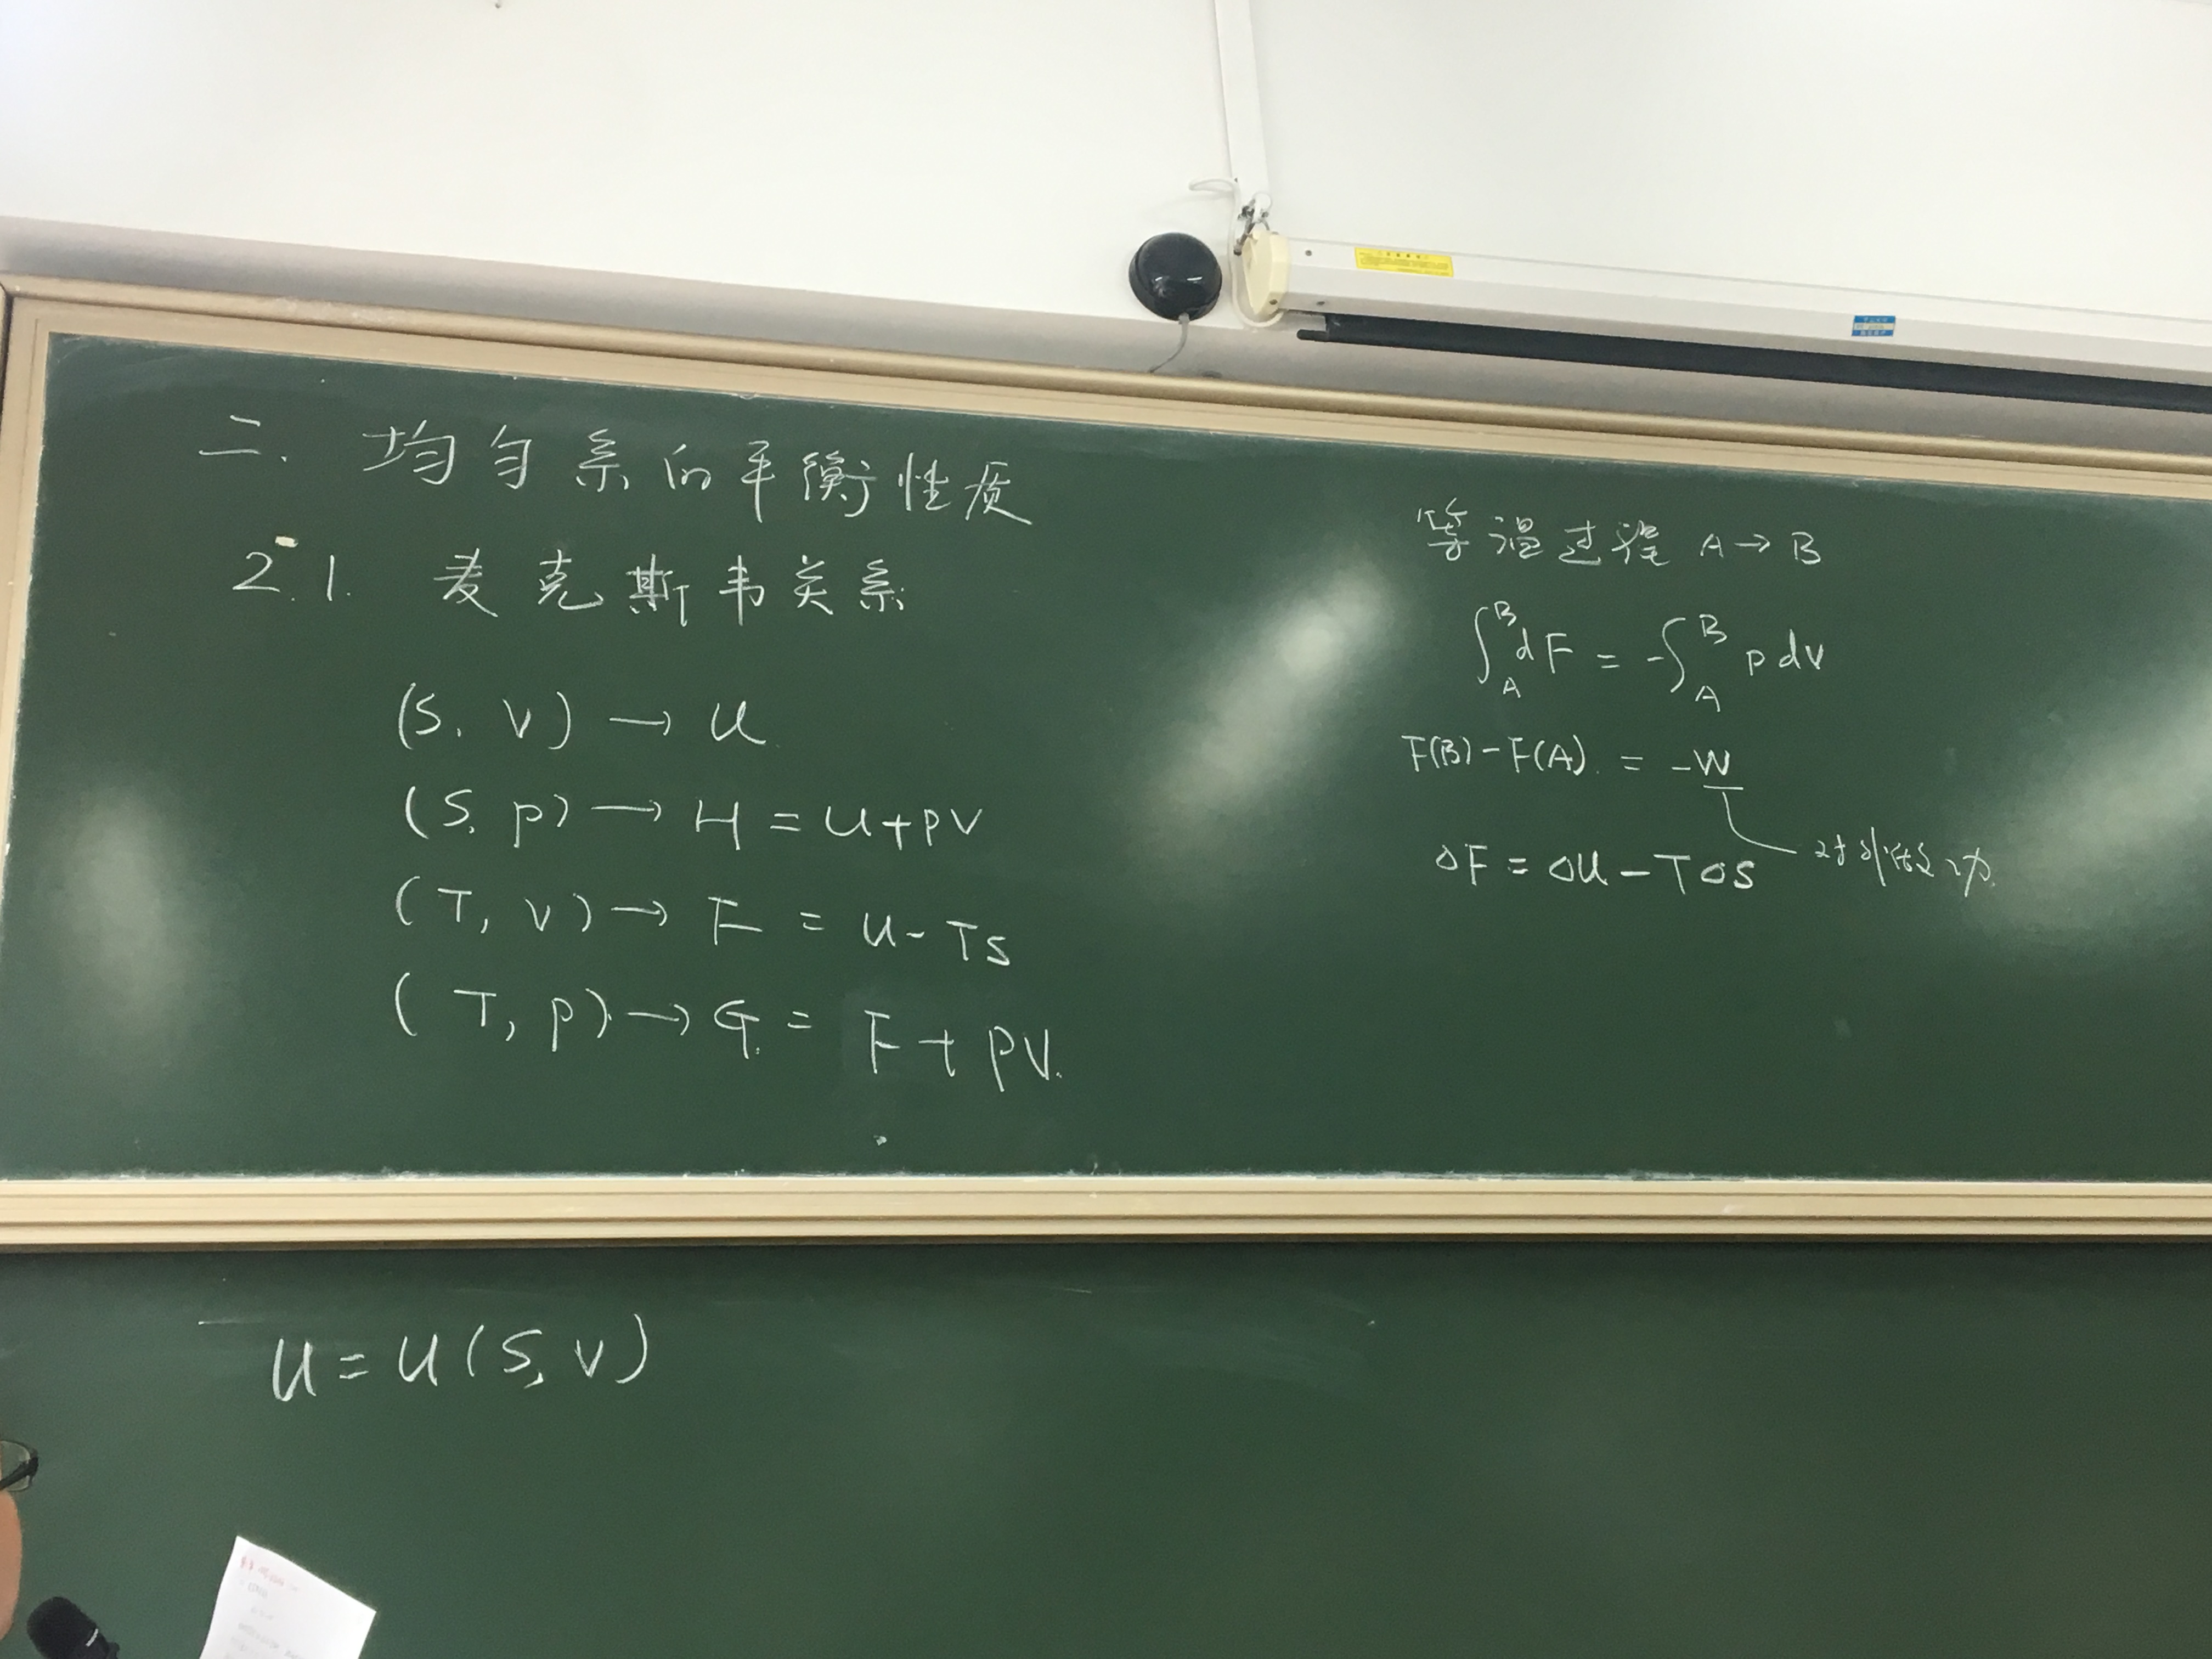 二. 均匀系的平衡性质
2.1. 麦克斯韦关系
(S, V) → U
(S, p) → H = U+pV
(T, V) → F = U-TS
(T, p) → G = F+PV.
等温过程 A→B
∫_A^B dF = -∫_A^B p dV
F(B)-F(A) = -W
对外做功
ΔF = ΔU - TΔS
U = U(S, V)